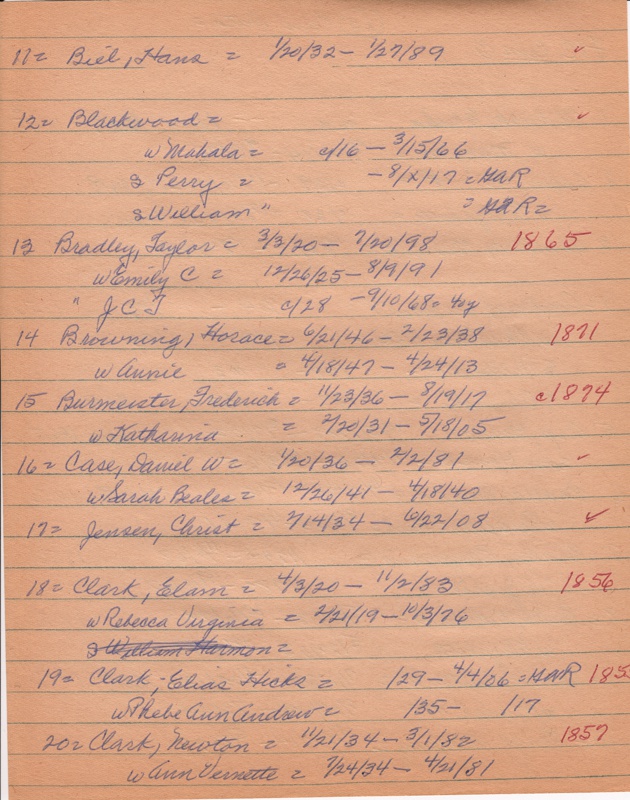 11= Biel, Hans = 1/20/32 – 1/27/89 ✓
12= Blackwood = ✓
w Mahala = c/16 – 3/15/66
s Perry = – 8/x/17 = GAR
s William " = GAR =
13 Bradley, Taylor = 3/3/20 – 7/20/98 1865
w Emily C = 12/26/25 – 8/9/91
" J C T c/28 – 9/10/68 =
14 Browning, Horace = 6/21/46 – 2/23/38 1871
w Annie = 4/18/47 – 4/24/13
15 Burmeister, Frederich = 11/23/36 – 8/19/17 c1874
w Katharina = 2/20/31 – 5/18/05
16= Case, Daniel W = 1/20/36 – 2/2/81 ✓
w Sarah Beales = 12/26/41 – 4/18/40
17= Jensen, Christ = 7/14/34 – 6/22/08 ✓
18= Clark, Elam = 4/3/20 – 11/2/83 1856
w Rebecca Virginia = 2/21/19 – 10/3/76
s William Harmon =
19= Clark, Elias Hicks = /29 – 4/4/06 = GAR 185
w Phebe Ann Andrew = /35 – /17
20= Clark, Newton = 11/21/34 – 3/1/82 1857
w Ann Vernette = 7/24/34 – 4/21/81